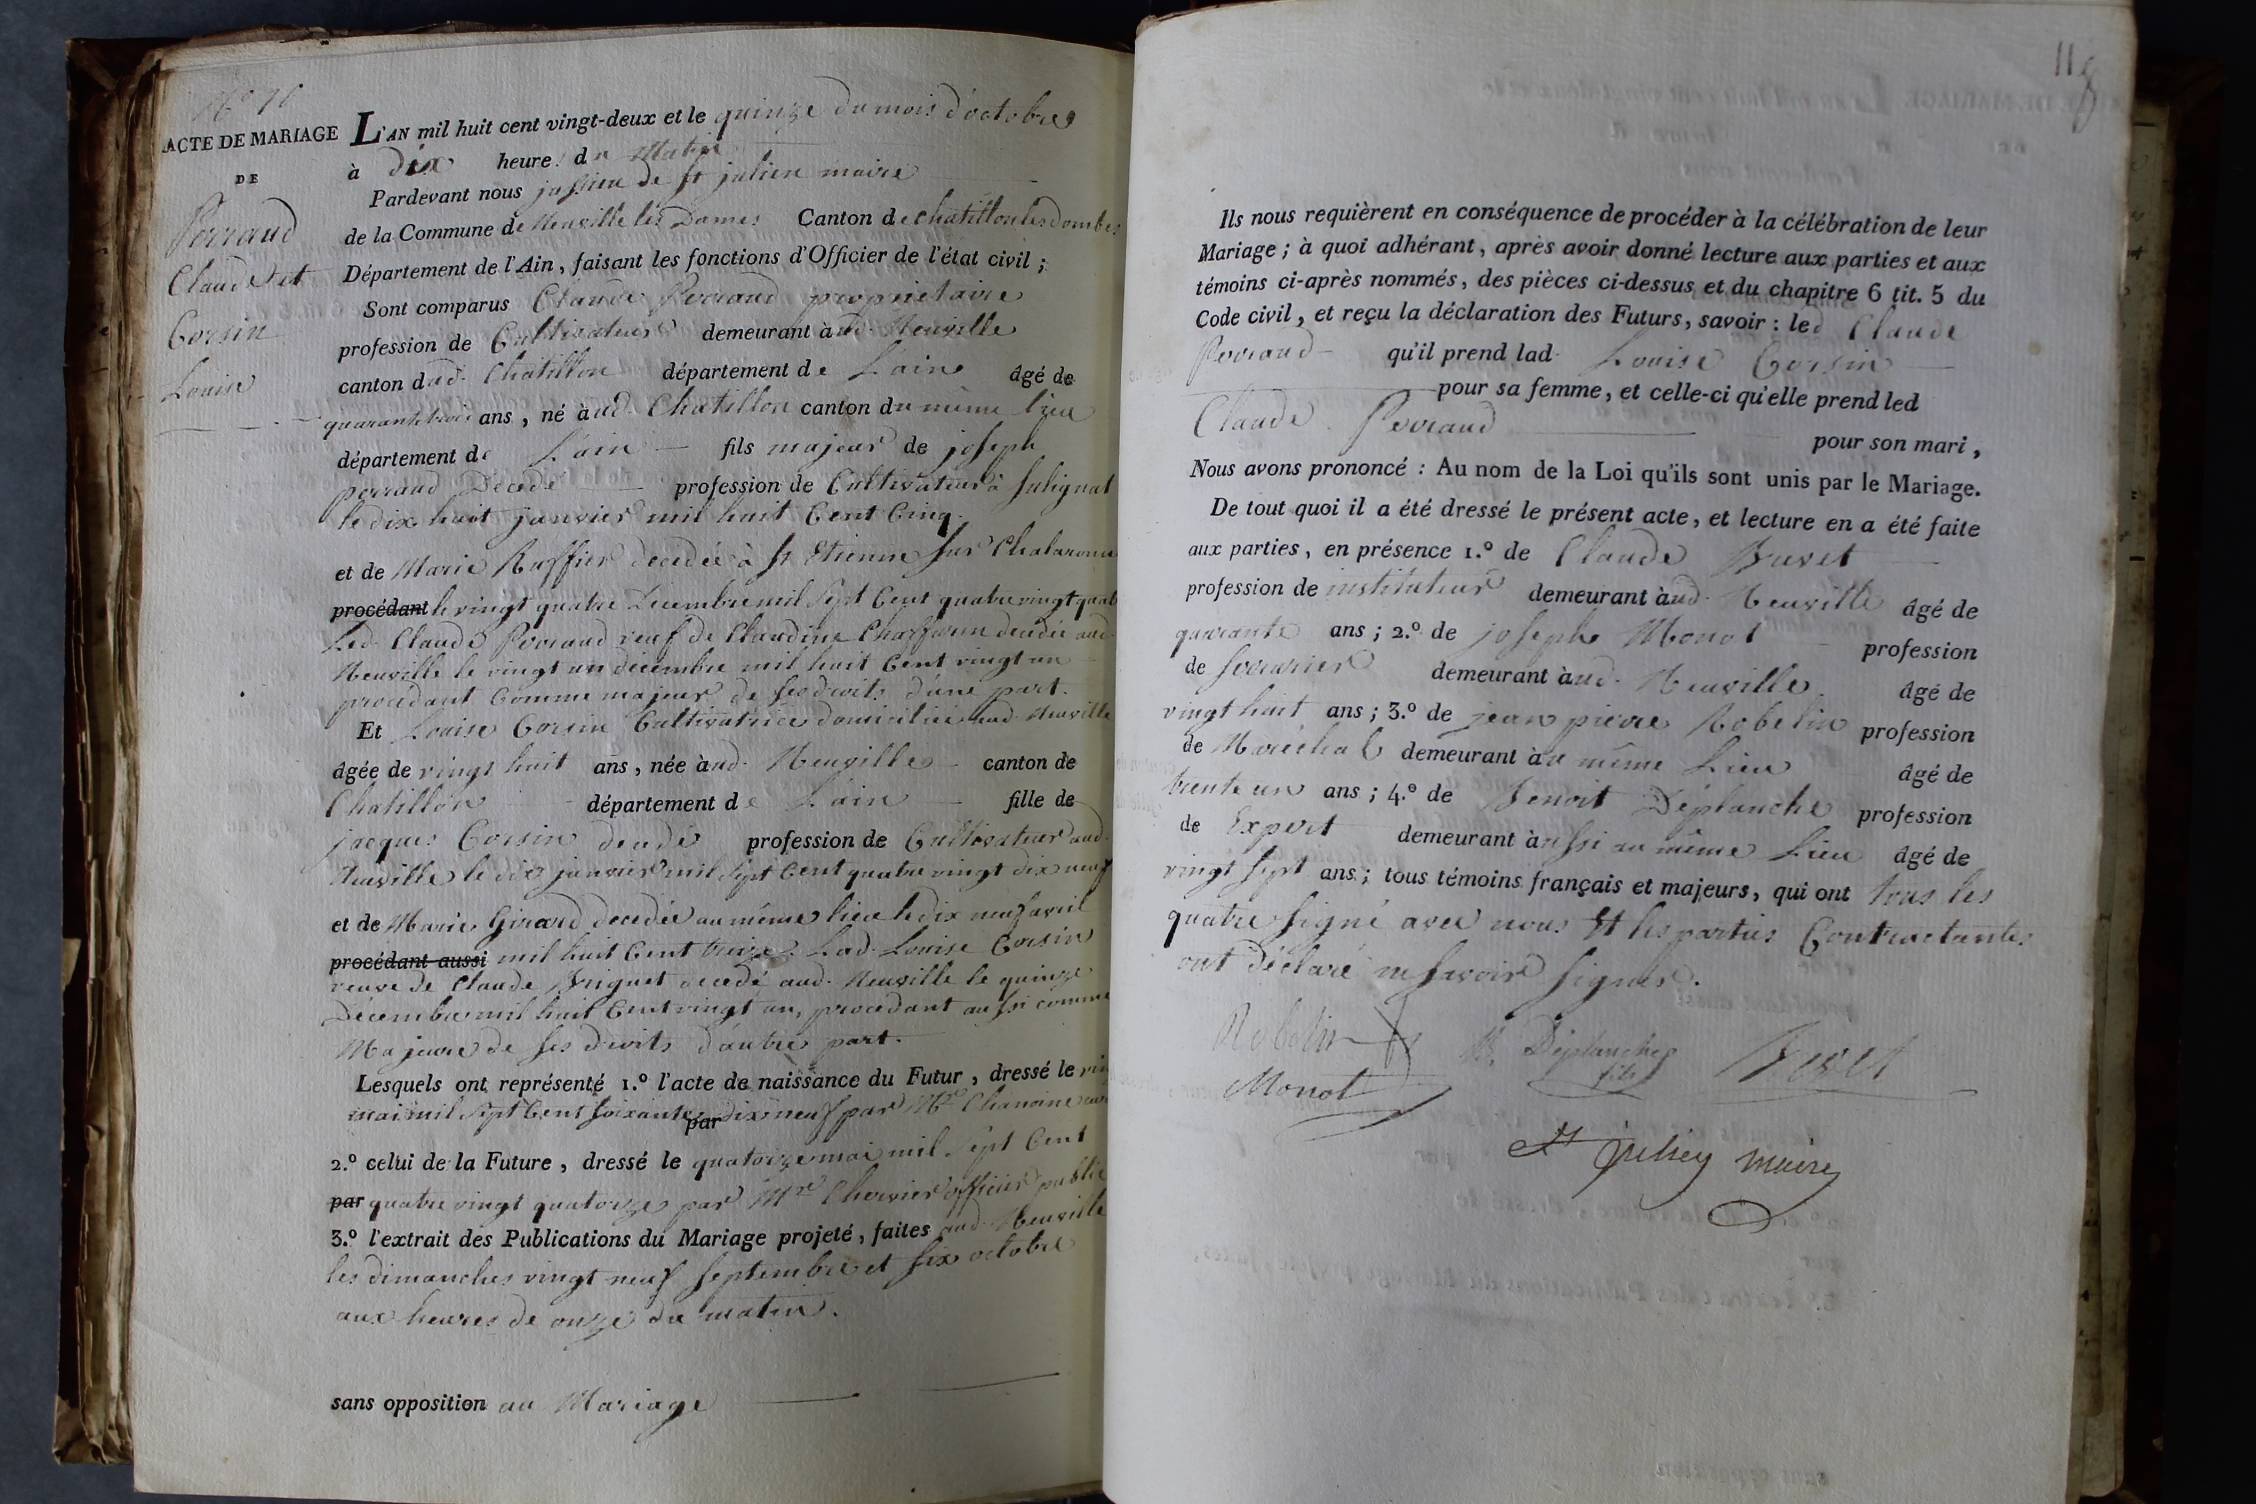 N° 76
ACTE DE MARIAGE
DE
Perraud
Claude et
Corsin
Louise
L'AN mil huit cent vingt-deux et le quinze du mois d'octobre
à dix heures du Matin
Pardevant nous jussieu de St julien maire
de la Commune de Neuville les Dames Canton de chatillon les dombes
Département de l'Ain, faisant les fonctions d'Officier de l'état civil ;
Sont comparus Claude Perraud propriétaire
profession de Cultivateur demeurant à ud. Neuville
canton dud. Chatillon département de L'ain âgé de
quarante trois ans, né à ud. Chatillon canton du même lieu
département de L'ain fils majeur de joseph
perraud Décédé profession de Cultivateur à Sulignat
le dix huit janvier mil huit Cent Cinq.
et de Marie Ruffier decedée à St Etienne sur Chalaronne
procédant le vingt quatre Decembre mil Sept Cent quatre vingt quat
Led. Claude Perraud veuf de Claudine decedée aud.
Neuville le vingt un décembre mil huit Cent vingt un
procédant Comme majeur de ses droits d'une part.
Et Louise Corsin Cultivatrice domiciliée aud. Neuville
âgée de vingt huit ans, née à ud. Neuville canton de
Chatillon département de L'ain fille de
jacques Corsin decedé profession de Cultivateur aud.
Neuville le dix janvier mil Sept Cent quatre vingt dix neuf
et de Marie Girard decedée au même lieu le dix neuf avril
procédant aussi mil huit Cent treize. Lad. Louise Corsin
veuve de Claude decedé aud. Neuville le quinze
Décembre mil huit Cent vingt un, procedant aussi comme
Majeure de ses droits d'autre part.
Lesquels ont représenté 1.° l'acte de naissance du Futur, dressé le
mai mil Sept Cent soixante dix neuf par Mre Chanoine
par
2.° celui de la Future, dressé le quatorze mai mil Sept Cent
par quatre vingt quatorze par Mre Chervier officier public
3.° l'extrait des Publications du Mariage projeté, faites aud. Neuville
les dimanches vingt neuf Septembre et Six octobre
aux heures de onze du matin.
sans opposition au Mariage
118
Ils nous requièrent en conséquence de procéder à la célébration de leur
Mariage ; à quoi adhérant, après avoir donné lecture aux parties et aux
témoins ci-après nommés, des pièces ci-dessus et du chapitre 6 tit. 5 du
Code civil, et reçu la déclaration des Futurs, savoir : led Claude
Perraud qu'il prend lad. Louise Corsin
pour sa femme, et celle-ci qu'elle prend led
Claude Perraud
pour son mari,
Nous avons prononcé : Au nom de la Loi qu'ils sont unis par le Mariage.
De tout quoi il a été dressé le présent acte, et lecture en a été faite
aux parties, en présence 1.° de Claude Buvet
profession de instituteur demeurant à ud. Neuville âgé de
quarante ans ; 2.° de joseph Monot profession
de Serrurier demeurant à ud. Neuville. âgé de
vingt huit ans ; 3.° de jean pierre Robelin profession
de Maréchal demeurant à u même Lieu âgé de
trente un ans ; 4.° de Benoit Déplanche profession
de Expert demeurant à ussi au même Lieu âgé de
vingt Sept ans ; tous témoins français et majeurs, qui ont tous les
quatre signé avec nous Et les parties Contractantes
ont déclaré ne savoir signer.
Robelin B. Déplanche fils Buvet
Monot
St julien maire